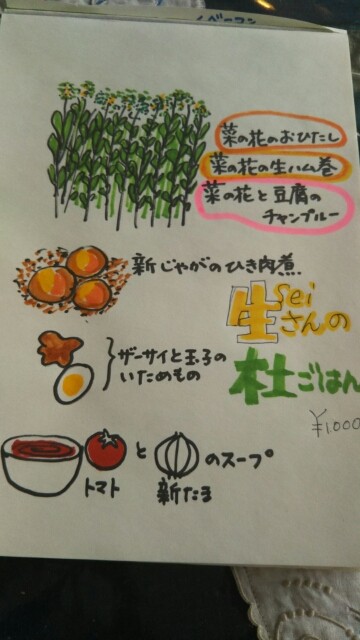 菜の花のおひたし
菜の花の生ハム巻
菜の花と豆腐の
チャンプルー
新じゃがのひき肉煮
sei
生さんの
杜ごはん
¥1,000
ザーサイと玉子の
いためもの
トマト
と
新たま
のスープ